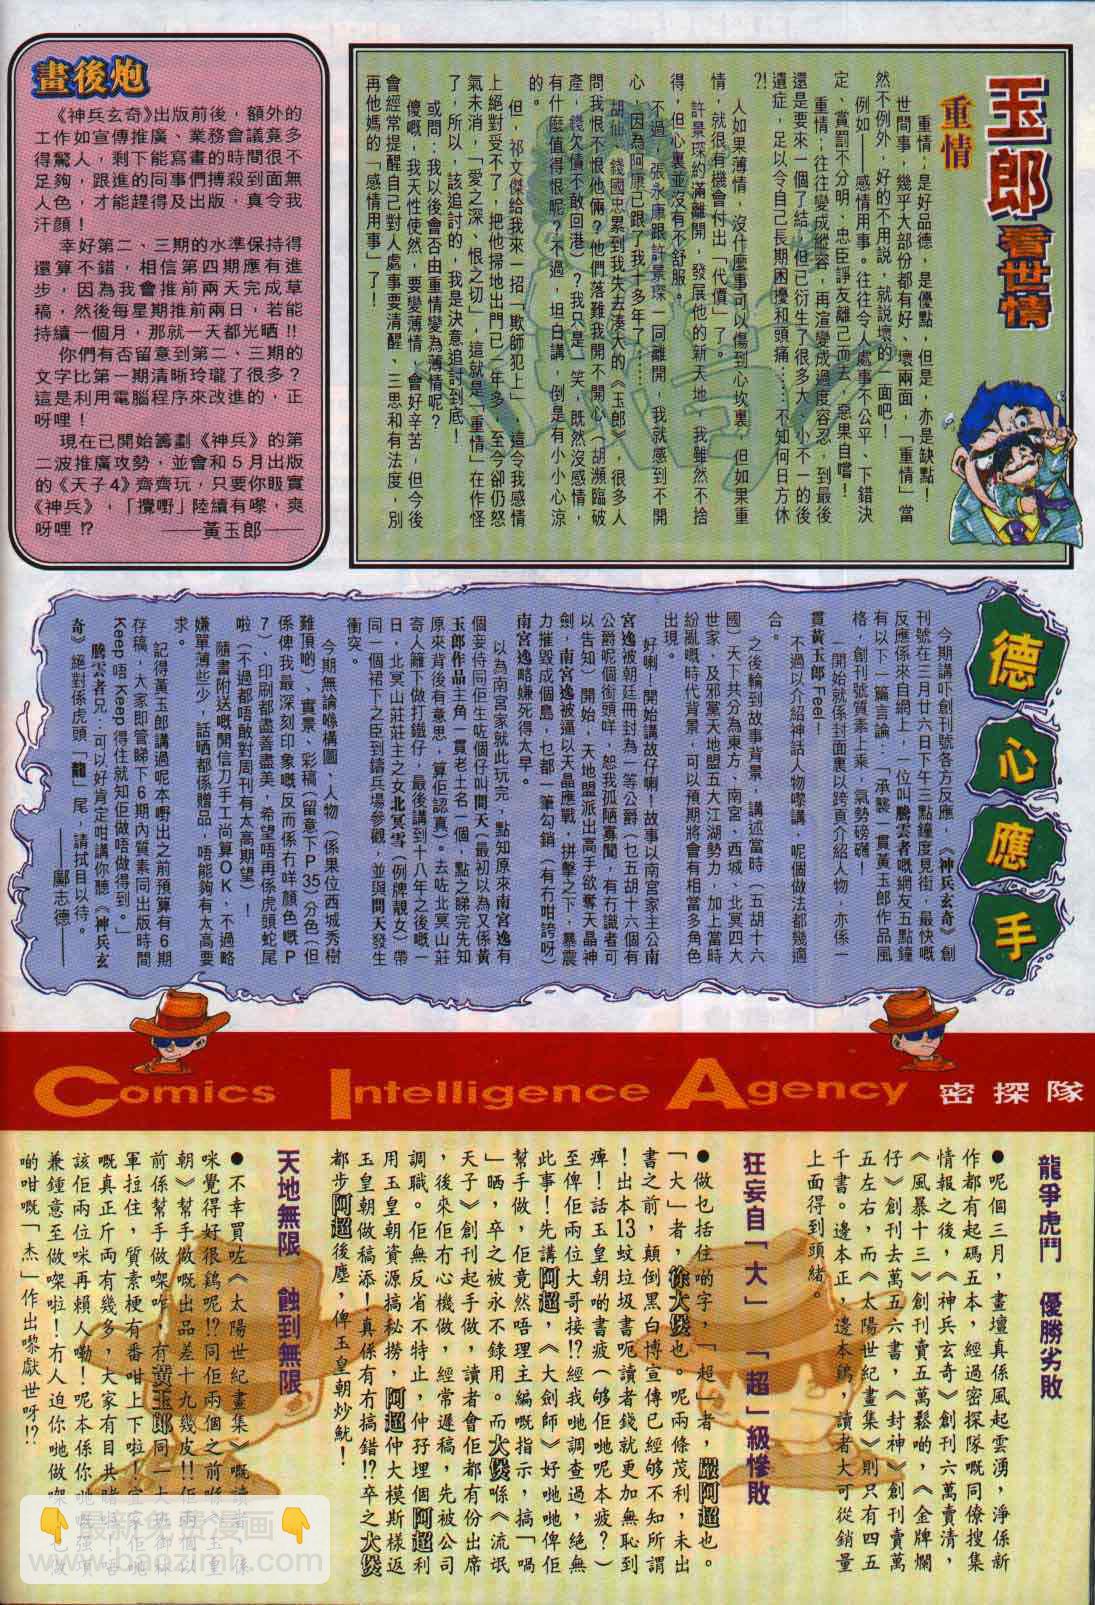 玉郎看世情
重情
重情，是好品德，是優點，但是，亦是缺點！
世間事，幾乎大部份都有好、壞兩面，「重情」當
然不例外，好的不用說，就説壞的一面吧！
例如——感情用事。往往令人處事不公平、下錯決
定、賞罰不分明、忠臣諍友離己而去，惡果自嚐！
重情，往往變成縱容，再渲變成過度容忍，到最後
還是要來一個了結，但已衍生了很多大、小不一的後
遺症，足以令自己長期困擾和頭痛……不知何日方休
?!
人如果薄情，沒什麼事可以傷到心坎裏，但如果重
情，就很有機會付出「代價」了。
許景琛約滿離開，發展他的新天地，我雖然不捨
得，但心裏並沒有不舒服。
不過，張永康跟許景琛一同離開，我就感到不開
心，因為阿康已跟了我十多年了……
胡仙、錢國忠累到我失去湊大的《玉郎》，很多人
問我恨不恨他倆？他們落難我開不開心（胡瀕臨破
產，錢欠債不敢回港）？我只是一笑，既然沒感情，
有什麼值得恨呢？不過，坦白講，倒是有小小心涼
的。
但，祁文傑給我來一招「欺師犯上」，這令我感情
上絕對受不了，把他掃地出門已一年多，至今卻仍怒
氣未消，「愛之深、恨之切」，這就是「重情」在作怪
了，所以，該追討的，我是決意追討到底！
或問：我以後會否由重情變為薄情呢？
傻嘅，我天性使然，要變薄情，會好辛苦，但今後
會經常提醒自己對人處事要清醒、三思和有法度，別
再他媽的「感情用事」了！
畫後炮
《神兵玄奇》出版前後，額外的
工作如宣傳推廣、業務會議竟多
得驚人，剩下能寫畫的時間很不
足夠，跟進的同事們搏殺到面無
人色，才能趕得及出版，真令我
汗顏！
幸好第二、三期的水準保持得
還算不錯，相信第四期應有進
步，因為我會推前兩天完成草
稿，然後每星期推前兩日，若能
持續一個月，那就一天都光晒!!
你們有否留意到第二、三期的
文字比第一期清晰玲瓏了很多？
這是利用電腦程序來改進的，正
呀哩！
現在已開始籌劃《神兵》的第
二波推廣攻勢，並會和5月出版
的《天子4》齊齊玩，只要你眼實
《神兵》，「攪嘢」陸續有嚟，爽
呀哩!?
——黃玉郎——
德心應手
今期講吓創刊號各方反應，《神兵玄奇》創
刊號在三月廿六日下午三點鐘度見街，最快嘅
反應係來自網上，一位叫騰雲者嘅網友五點鐘
有以下一篇言論：「承襲一貫黃玉郎作品風
格，創刊號質素上乘，氣勢磅礴！
一開始就係封面裏以跨頁介紹人物，亦係一
貫黃玉郎Feel！
不過以介紹神話人物嚟講，呢個做法都幾適
合。
之後輪到故事背景，講述當時（五胡十六
國）天下共分為東方、南宮、西城、北冥四大
世家，及邪黨天地盟五大江湖勢力，加上當時
紛亂嘅時代背景，可以預期將會有相當多角色
出現。
好喇！開始講故仔喇！故事以南宮家主公南
宮逸被朝廷冊封為一等公爵（乜五胡十六個有
公爵呢個銜頭咩，恕我孤陋寡聞，有冇識者可
以告知）開始，天地盟派出高手欲奪天晶神
劍，南宮逸被逼以天晶應戰，拼擊之下，暴震
力摧毀成個島，乜都一筆勾銷（有冇咁誇呀）
南宮逸略嫌死得太早。
以為南宮家就此玩完，點知原來南宮逸有
個妾侍同佢生咗個仔叫問天（最初以為又係黃
玉郎作品主角一貫老土名一個，點之睇完先知
原來背後有意思，算佢認真）。去咗北冥山莊
寄人籬下做打鐵仔，最後講到十八年之後嘅一
日，北冥山莊莊主之女北冥雪（例牌靚女）帶
同一個裙下之臣到鑄兵場參觀，並與問天發生
衝突。
今期無論喺構圖、人物（係果位西城秀樹
難頂啲）、實景、彩稿（留意下P35）（分色（但
係俾我最深刻印象嘅反而係冇咩顏色嘅P
7）、印刷都盡善盡美，希望唔再係虎頭蛇尾
啦（不過都唔敢對周刊有太高期望）！
隨書附送嘅開信刀手工尚算OK，不過略
嫌單薄些少，話晒都係贈品，唔能夠有太高要
求。
記得黃玉郎講過呢本嘢出之前預算有6期
存稿，大家即管睇下6期內質素同出版時間
Keep唔Keep得住就知佢做唔做得到。」
騰雲者兄：可以好肯定咁講你聽《神兵玄
奇》絕對係虎頭「龍」尾，請拭目以待。
——鄺志德——
Comics Intelligence Agency 密探隊
龍爭虎鬥 優勝劣敗
●呢個三月，畫壇真係風起雲湧，淨係新
作都有起碼五本，經過密探隊嘅同僚搜集
情報之後，《神兵玄奇》創刊六萬賣清，
《風暴十三》創刊賣五萬鬆啲，《金牌爛
仔》創刊去萬五六書，《封神》創刊賣萬
五左右，而《太陽世紀畫集》則只有四五
千書。邊本正，邊本鵪，讀者大可從銷量
上面得到頭緒。
狂妄自「大」 「超」級慘敗
●做乜括住啲字，「超」者，嚴阿超也。
「大」者，徐大煲也。呢兩條茂利，未出
書之前，顛倒黑白博宣傳已經够不知所謂
！出本13蚊垃圾書呃讀者錢就更加無恥到
痺！話玉皇朝啲書疲（够佢哋呢本疲？）
至俾佢兩位大哥接!?經我哋調查過，絕無
此事！先講阿超，《大劍師》好哋哋俾佢
幫手做，佢竟然唔理主編嘅指示，搞「喎
」晒，卒之被永不錄用。而大煲喺《流氓
天子》創刊起手做，讀者會佢都有份出席
，後來佢冇心機做，經常遲稿，先被公司
調職。佢無反省不特止，仲孖埋個阿超利
用玉皇朝資源搞秘撈，阿超仲大模斯樣返
玉皇朝做稿添！真係有冇搞錯!?卒之大煲
都步阿超後塵，俾玉皇朝炒魷！
天地無限 蝕到無限
最新免費漫画
www.baozimh.com